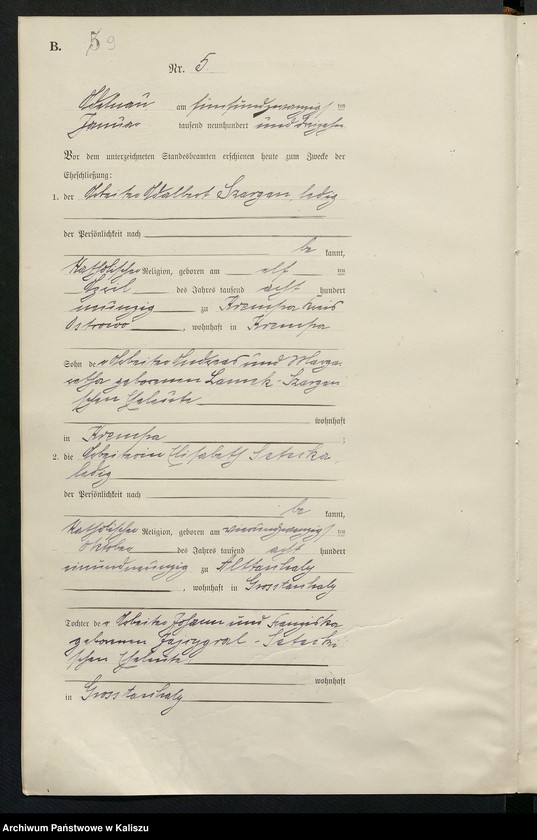 B. 59
Nr. 5
Adelnau am fünfundzwanzigsten
Januar tausend neunhundert und
Vor dem unterzeichneten Standesbeamten erschienen heute zum Zwecke der
Eheschließung:
1. der Arbeiter Adalbert Szargan, ledig
der Persönlichkeit nach
be kannt,
katholischer Religion, geboren am elf ten
April des Jahres tausend acht hundert
neunzig zu Krempa Kreis
Ostrowo, wohnhaft in Krempa
Sohn der Arbeiter Andreas und Marga-
retha geborenen Szargan-
schen Eheleute
wohnhaft
in Krempa ;
2. die Arbeiterin Elisabeth
ledig
der Persönlichkeit nach
be kannt,
katholischer Religion, geboren am vierundzwanzigsten
Oktober des Jahres tausend acht hundert
einundneunzig zu
, wohnhaft in
Tochter der Arbeiter Johann und Franziska
geborenen
schen Eheleute
wohnhaft
in
Archiwum Państwowe w Kaliszu